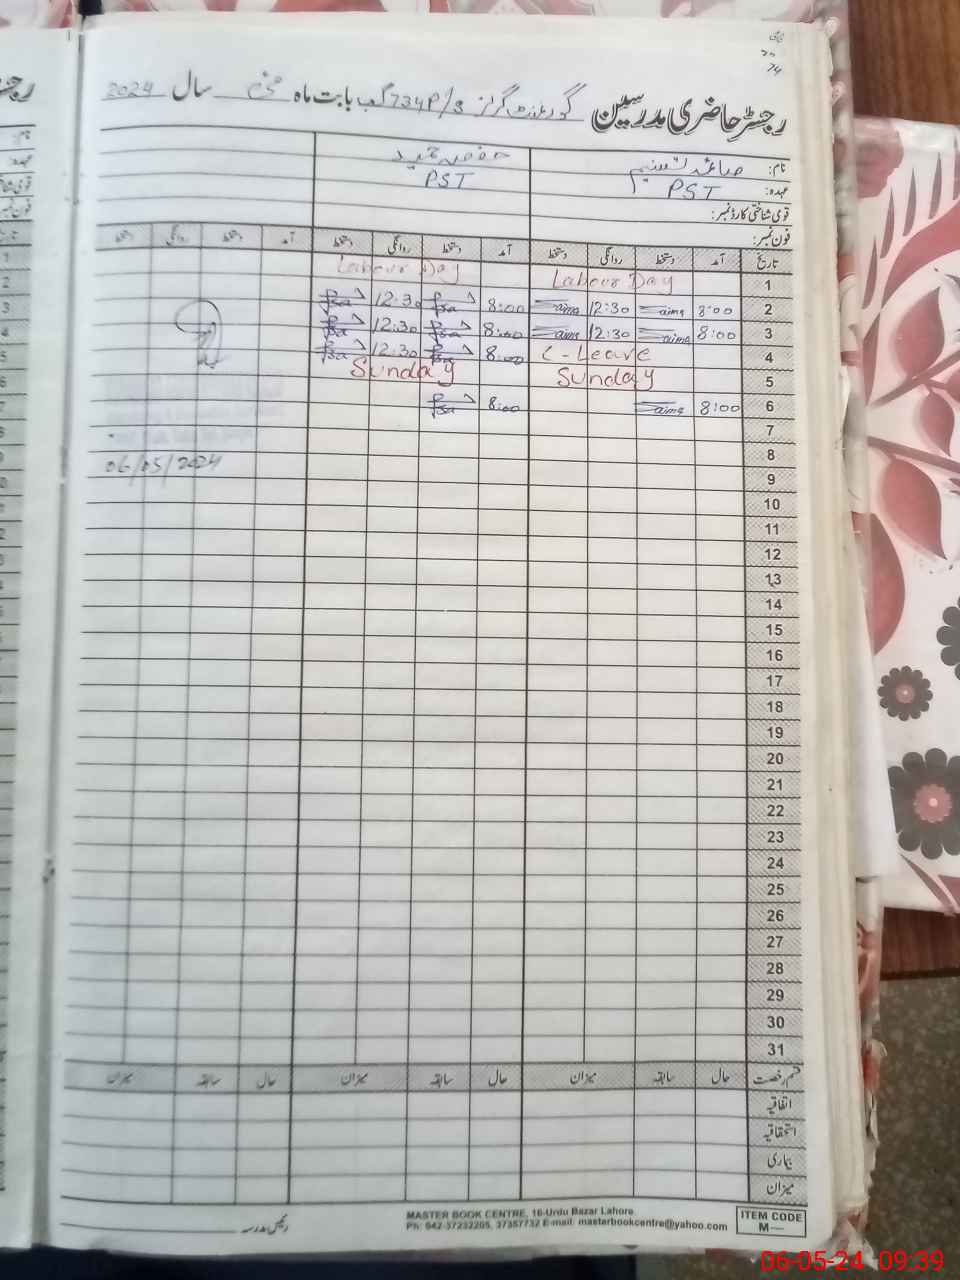 رجسٹر حاضری مدرسین گورنمنٹ گرلز 734P/S گ ب بابت ماہ سال 2024
نام: صائمہ تسنیم
عہدہ: PST PST
قومی شناختی کارڈ نمبر:
فون نمبر:
تاریخ آمد دستخط روانگی دستخط آمد دستخط روانگی دستخط آمد دستخط روانگی دستخط
1 Labour Day Labour Day
2 8:00 Saima 12:30 Saima 8:00 12:30
3 8:00 Saima 12:30 Saima 8:00 12:30
4 C-Leave 8:00 12:30
5 Sunday Sunday
6 8:00 Saima 8:00
7
8
06/05/2024
9
10
11
12
13
14
15
16
17
18
19
20
21
22
23
24
25
26
27
28
29
30
31
قسم رخصت حال سابقہ میزان حال سابقہ میزان حال سابقہ میزان
اتفاقیہ
استحقاقیہ
بیماری
میزان
رئیس مدرسہ
MASTER BOOK CENTRE, 16-Urdu Bazar Lahore
Ph: 042-37232205, 37357732 E-mail: masterbookcentre@yahoo.com
ITEM CODE
M—
06-05-24 09:39